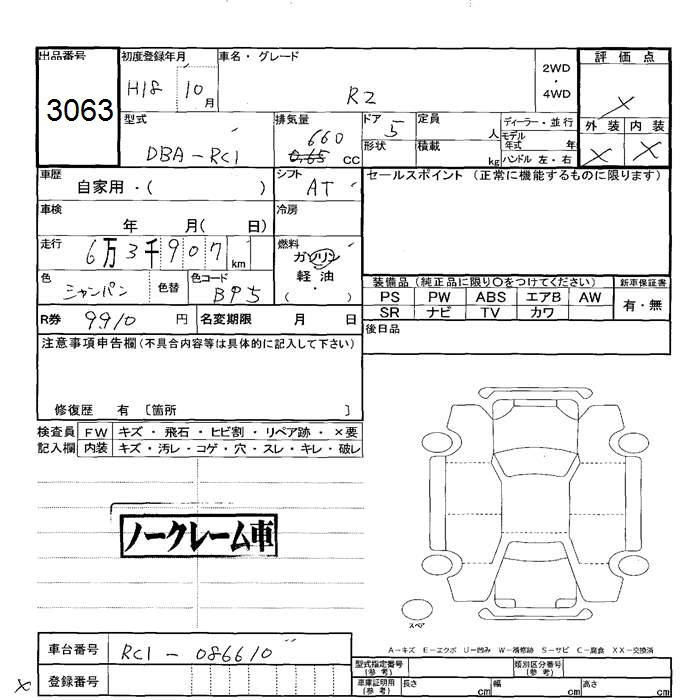 出品番号 初度登録年月 車名・グレード
3063 H18 10月 R2 2WD・4WD
評価点
×
外装 内装
× ×
型式 排気量 ドア 定員 ディーラー・並行
DBA-RC1 660 0.65 cc 5 人 モデル年式 年
形状 積載 kg ハンドル 左・右
車歴 シフト セールスポイント(正常に機能するものに限ります)
自家用・( ) AT
車検 冷房
年 月( 日)
走行 燃料
6万3千907km ガソリン
軽油
・( )
色 色替 色コード
シャンパン B95
装備品(純正品に限り○をつけてください) 新車保証書
PS PW ABS エアB AW 有・無
SR ナビ TV カワ
R券 9910 円 名変期限 月 日
後日品
注意事項申告欄(不具合内容等は具体的に記入して下さい)
修復歴 有 〔箇所 〕
検査員 FW キズ・飛石・ヒビ割・リペア跡・×要
記入欄 内装 キズ・汚レ・コゲ・穴・スレ・キレ・破レ
ノークレーム車
スペア
A-キズ E-エクボ U-凹み W-補修跡 S-サビ C-腐食 XX-交換済
車台番号 RC1-086610
登録番号
×
型式指定番号(参考) 類別区分番号(参考)
車庫証明用(参考) 長さ cm 幅 cm 高さ cm